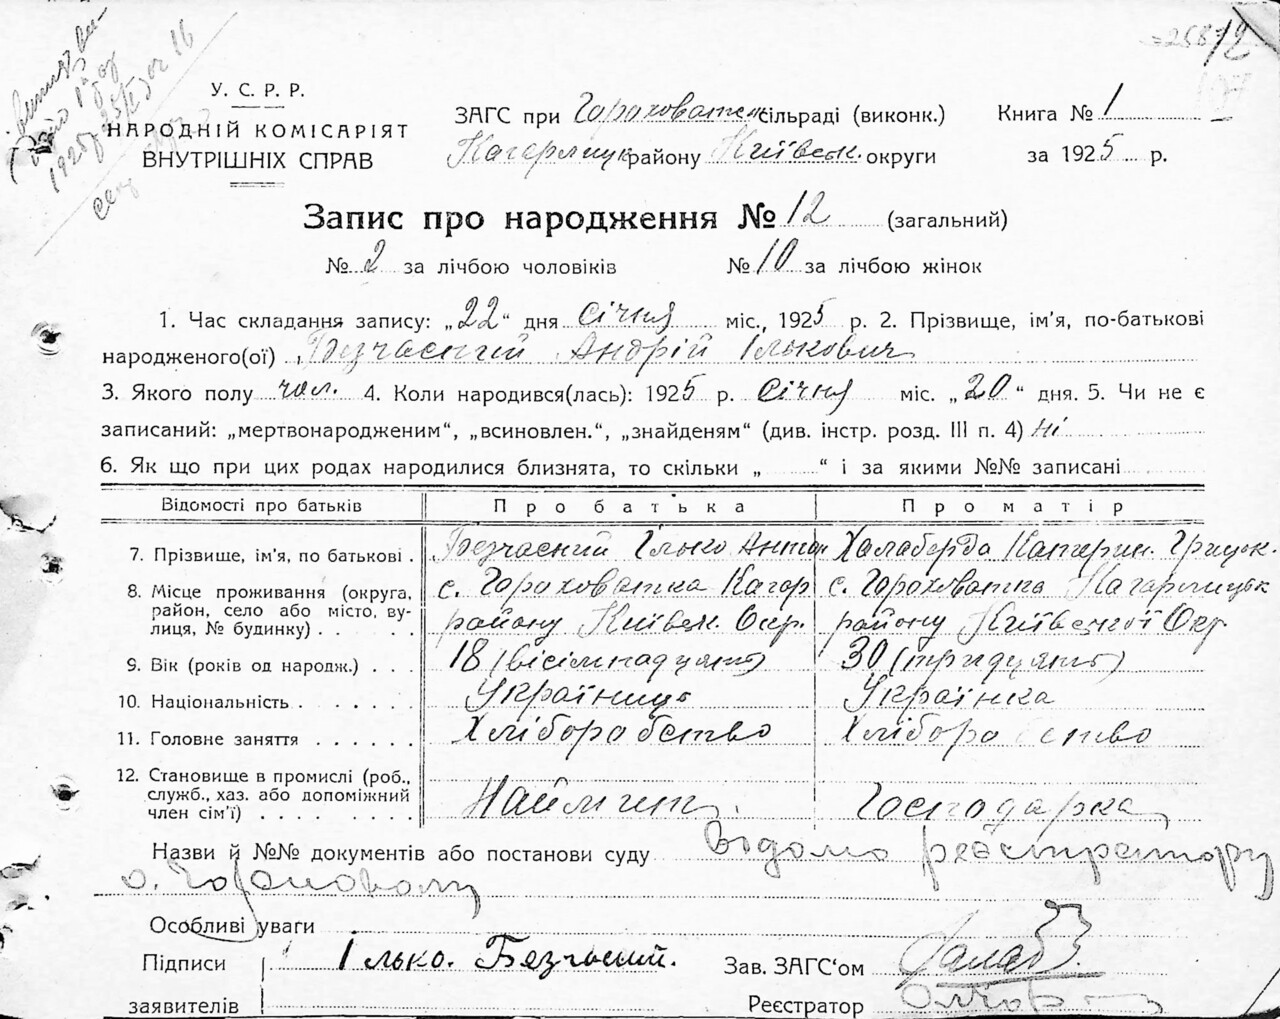 258/2
У. С. Р. Р.
НАРОДНІЙ КОМІСАРІЯТ
ВНУТРІШНІХ СПРАВ
ЗАГС при Гороховатськ сільраді (виконк.)
Кагарлицьк району Київськ. округи
Книга № 1
за 1925 р.
Запис про народження № 12 (загальний)
№ 2 за лічбою чоловіків № 10 за лічбою жінок
1. Час складання запису: „22“ дня січня міс., 1925 р. 2. Прізвище, ім’я, по-батькові
народженого(ої) Безчасний Андрій Ількович
3. Якого полу чол. 4. Коли народився(лась): 1925 р. січня міс. „20“ дня. 5. Чи не є
записаний: „мертвонародженим“, „всиновлен.“, „знайденям“ (див. інстр. розд. III п. 4) ні
6. Як що при цих родах народилися близнята, то скільки „ “ і за якими №№ записані
Відомості про батьків Про батька Про матір
7. Прізвище, ім’я, по батькові . Безчасний Ілько Антон Халаберда Катерин. Грицьк.
8. Місце проживання (округа, район, село або місто, вулиця, № будинку) . с. Гороховатка Кагар с. Гороховатка Кагарлицьк
району Київськ. Окр. району Київської Окр
9. Вік (років од народж.) . . . 18 (вісімнадцять) 30 (тридцять)
10. Національність . . . . . . Українець Українка
11. Головне заняття . . . . . . Хліборобство Хліборобство
12. Становище в промислі (роб., служб., хаз. або допоміжний член сім’ї) . . . . . . . . Наймит Господарка
Назви й №№ документів або постанови суду Відомо реєстратору
Особливі уваги
Підписи Ілько. Безчасний. Зав. ЗАГС‘ом
заявителів Реєстратор